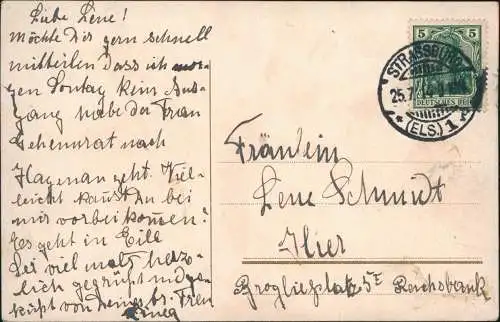 Liebe Lene!
Möchte Dir gern schnell
mitteilen Dass ich mor-
gen Sontag kein Aus-
gang habe der Frau
Geheimrat nach
Hagenau geht. Viel-
leicht kanst Du bei
mir vorbeikommen?
Es geht in Eile
Sei viel mals herz-
lich gegrüßt und ge-
küßt von
5
5
DEUTSCHES REICH
STRASSBURG
25.7.
*(ELS.) 1
Fräulein
Lene Schmidt
Hier
Brogliеplatz 5I Reichsbank